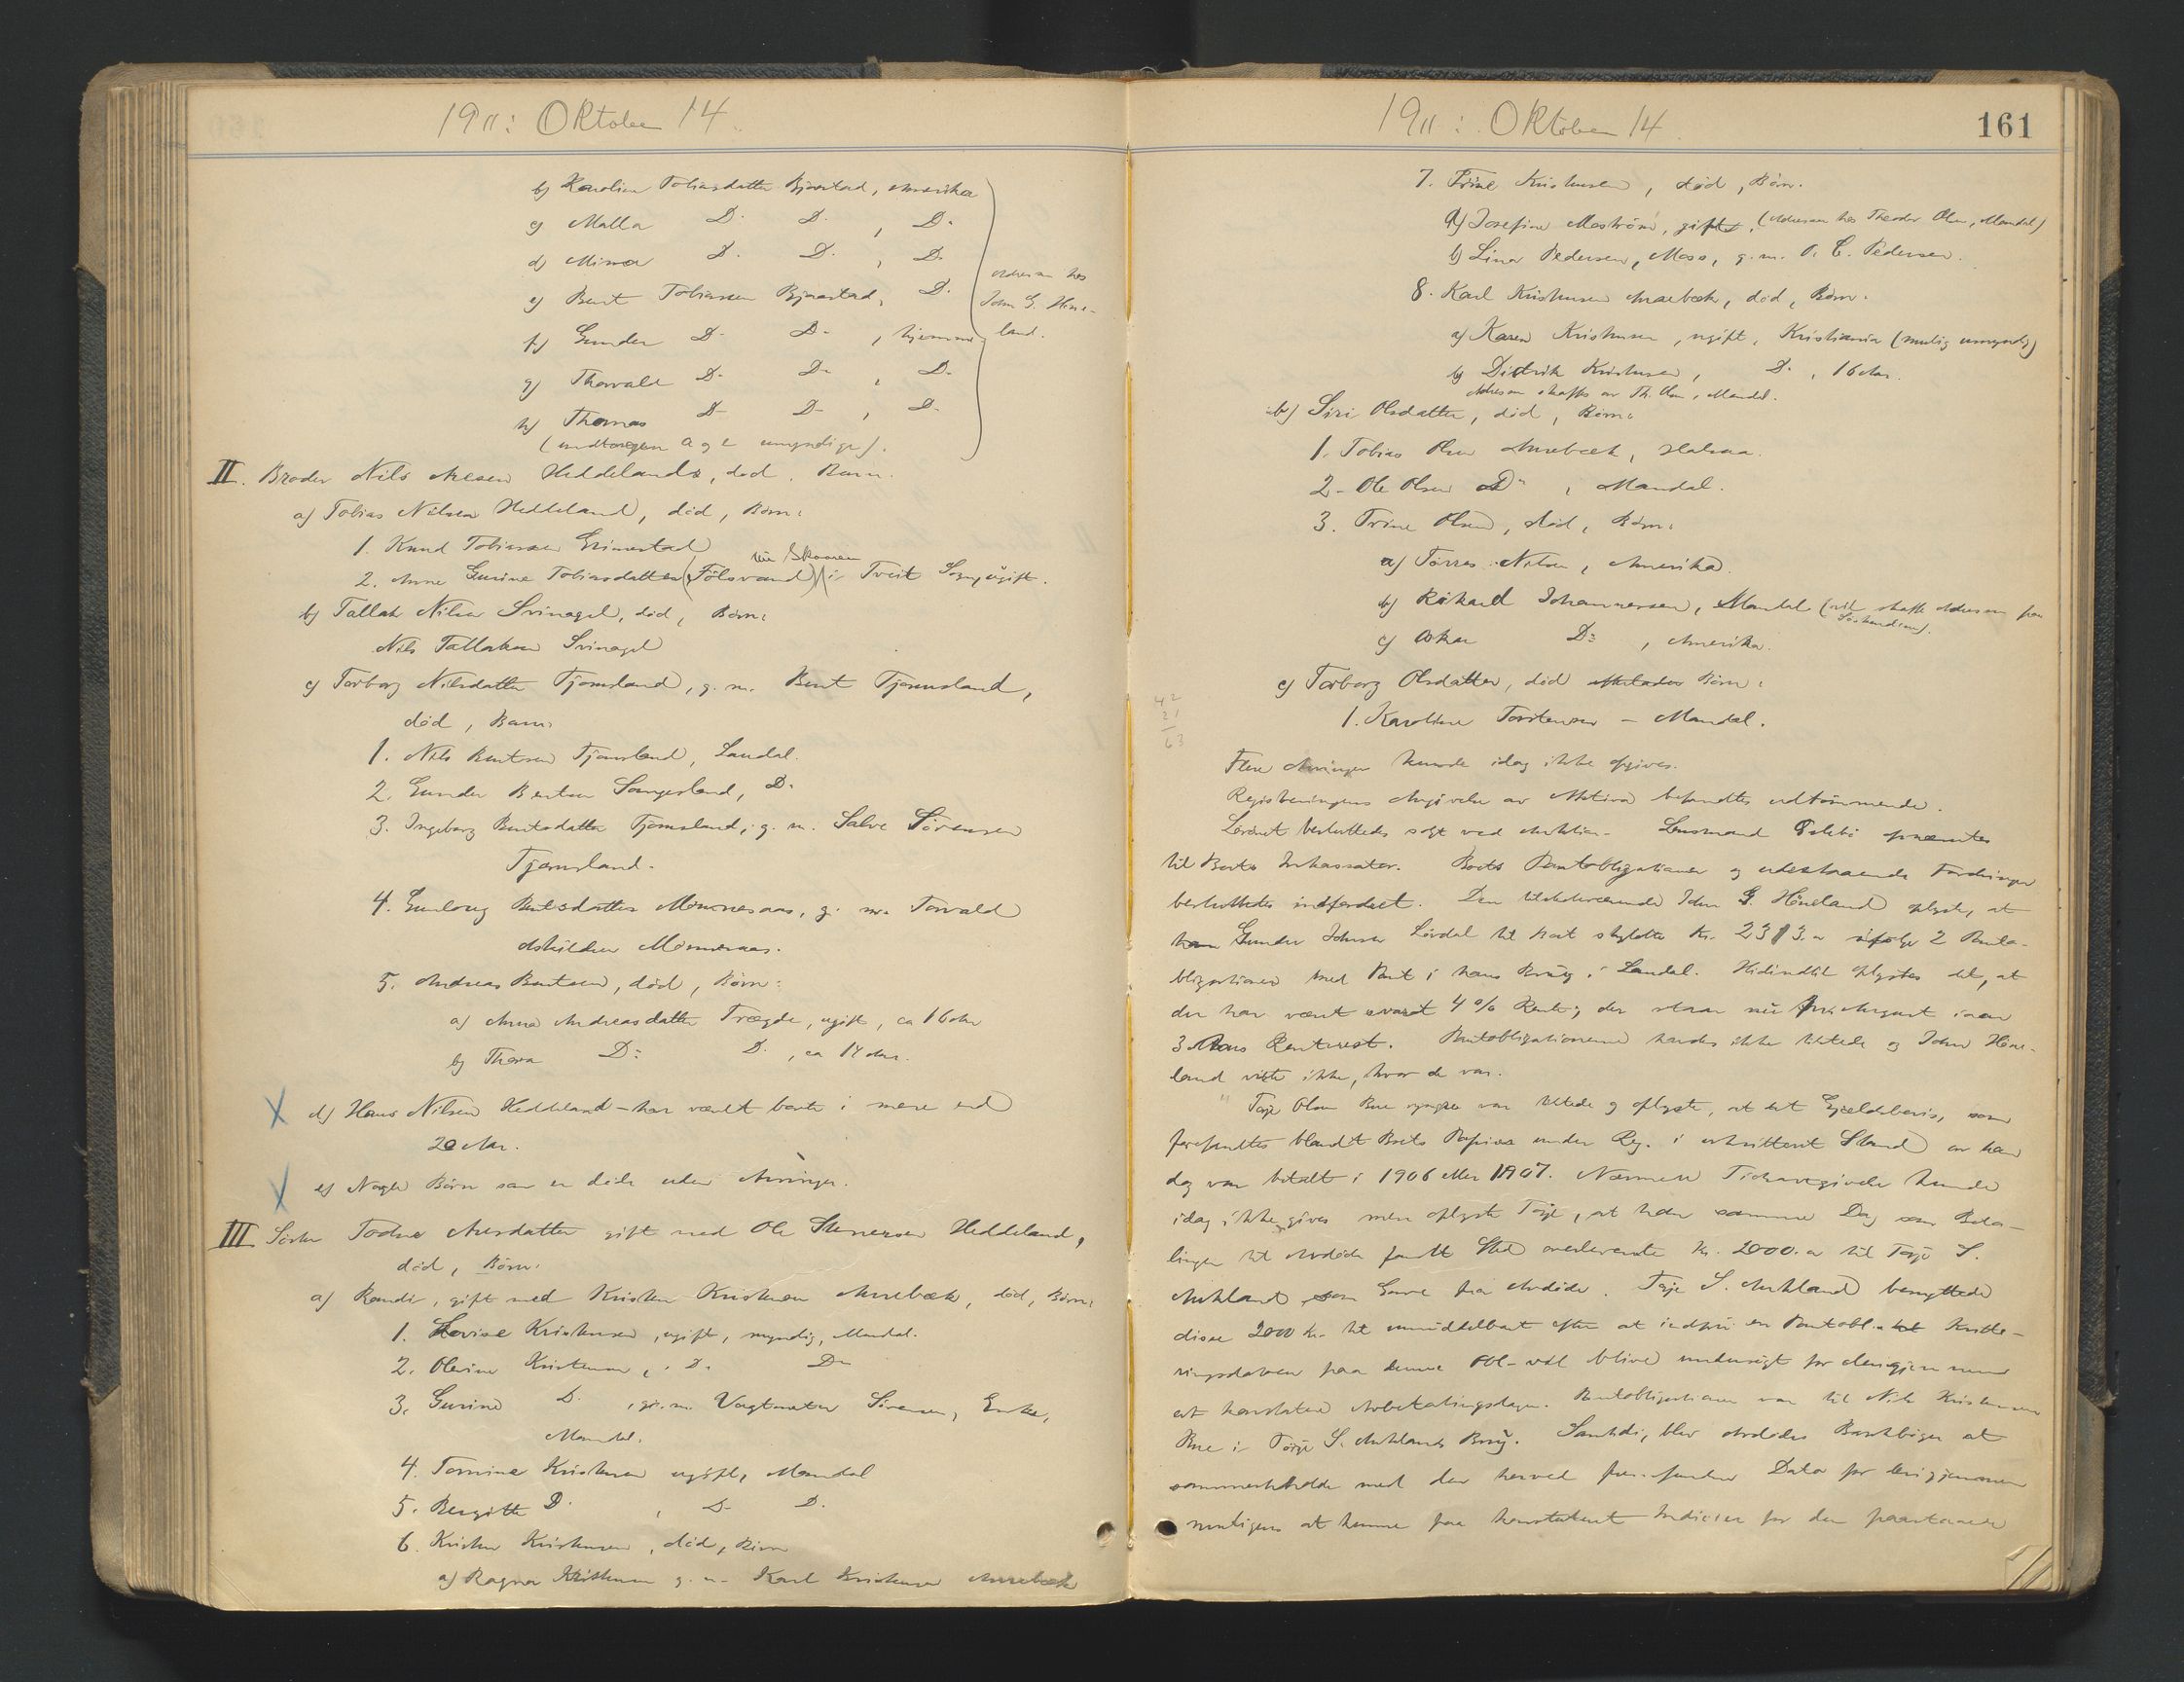 1911: Oktober 14.
b) Karoline Tobiasdatter Bjørstad, Amerika
c) Malla D. D. , D.
d) Minna D. D. , D.
e) Bent Tobiassen Bjørstad, D.
Adressen hos
John G. Høne-
land.
f) Gunder D. D. , hjemme
g) Thorvald D. D. , D.
h) Thomas D. D. , D.
(undtagen a og e umyndige).
II. Broder Nils Heddeland, død. Barn.
a) Tobias Nilsen Heddeland, død, Børn:
1. Knud Tobiassen Grimestad
nu Skaaren
2. Anne Gurine Tobiasdatter (Fölsvand) i Tveit Sogn, ugift.
b) Tallak Nilsen Svinagel, død, Børn:
Nils Tallaksen Svinagel
c) Torborg Nilsdatter Tjomsland, g. m. Bent Tjomsland,
død, Barn:
1. Nils Bentsen Tjomsland, Laudal.
2. Gunder Bentsen D.
3. Ingeborg Bentsdatter Tjomsland, g. m. Salve Sörensen
Tjomsland.
4. Gunlaug Bentsdatter Mönnesaas, g. m. Torvald
Mönnesaas.
5. Andreas Bentsen, død, Børn:
a) Anna Andreasdatter Trægde, ugift, ca 16 Aar
b) Thora D: D. , ca 14 Aar.
d) Hans Nilsen Heddeland – har været borte i mere end
20 Aar.
e) Nogle Børn som er døde uden Arvinger.
III Søster Todne gift med Ole Stenersen Heddeland,
død, Børn:
a) Randi, gift med Kristen Kristensen Aurebæk, død, Børn:
1. Lovise Kristensen, ugift, myndig, Mandal.
2. Olevine Kristensen, D. D.
3. Gurine D. , g. m. Vagtmester Sörensen, Enke,
Mandal.
4. Tomine Kristensen ugift, Mandal
5. Bergitte D. , D. D.
6. Kristen Kristensen, død, Børn
a) Ragna Kristensen g. m. Karl Kristensen Aurebæk
1911: Oktober 14.
161
7. Trine Kristensen, død, Børn.
a) Josefine Moström, gift, (Adressen hos Theodor Olsen, Mandal)
b) Lina Pedersen, Moss, g. m. P. C. Pedersen.
8. Karl Kristensen Aurebæk, død, Børn.
a) Karen Kristensen, ugift, Kristiania (mulig umyndig)
b) Didrik Kristensen, D. , 16 Aar.
Adressen skaffes av Th. Olsen, Mandal.
b) Siri Olsdatter, død, Børn:
1. Tobias Olsen Aurebæk,
2. Ole Olsen D: , Mandal.
3. Trine Olsen, død, Børn:
a) Törres Nilsen, Amerika.
b) Rikard Johannessen, Mandal (vil skaffe Adressen paa
Söskendene).
c) Oskar D: , Amerika.
c) Torborg Olsdatter, død Børn:
42
21
63
1. Karoline Torstensen – Mandal.
Flere Arvinger kunde idag ikke opgives.
Registreringens Angivelse av Aktiva befandtes udtömmende.
Lösöret besluttedes solgt ved Auktion. Lensmand opnævntes
til Boets Inkassator. Boets Pantobligationer og udestaaende Fordringer
besluttedes inddrevet. Den tilstedeværende John G. Höneland oplyste, at
Gunder Johnsen Lövdal til Boet skyldte Kr. 2313.- ifølge 2 Panto-
bligationer med Pant i hans Brug i Laudal. Hidindtil oplystes det, at
der har været svaret 4 % Rente; der staar nu fra August iaar
3 Aars Renterest. Pantobligationerne havdes ikke tilstede og John Höne-
land viste ikke, hvor de var.
Terje Olsen Bue var tilstede og oplyste, at det Gjældsbevis, som
forefandtes blandt Boets Papirer under Reg. i Stand av ham
dog var betalt i 1906 eller 1907. Nærmere Tidsangivelse kunde
idag ikke gives men oplyste Terje, at han samme Dag som Beta-
lingen til Avdöde fandt Sted overleverte Kr. 2000.- til Terje S.
Aukland som Gave fra Avdöde. Terje S. Aukland benyttede
disse 2000 Kr. til umiddelbart efter at indfri en Pantobl. Kvitte-
ringsdatoen paa denne Obl. vil blive undersögt for derigjennem
at konstatere Avbetalingsdagen. Pantobligationen var til Nils Kristensen
Bue i Terje S. Auklands Brug. Samtidig blev Avdödes Bankböger at
sammenholde med den herved fundne Dato for derigjennem
muligens at kunne faa konstateret Indicier for den paastaaede